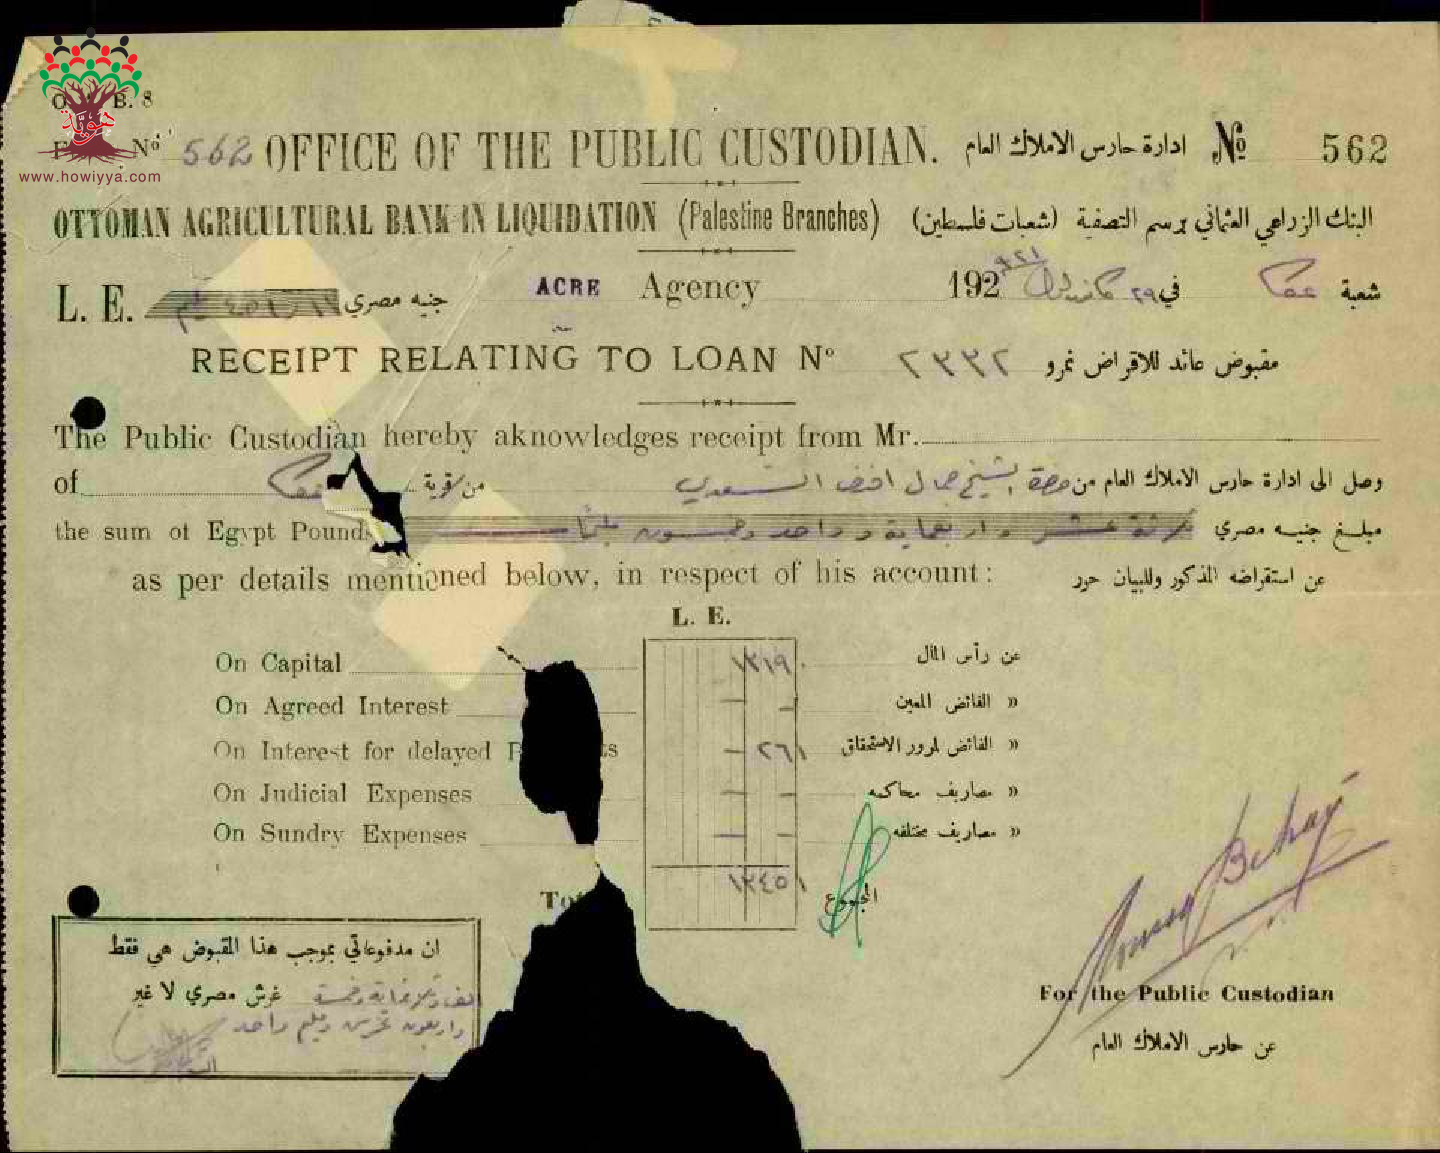 هويّة
www.howiyya.com
B. 8
Nº 562 OFFICE OF THE PUBLIC CUSTODIAN. ادارة حارس الاملاك العام Nº 562
OTTOMAN AGRICULTURAL BANK IN LIQUIDATION (Palestine Branches) البنك الزراعي العثماني برسم التصفية (شعبات فلسطين)
L. E. جنيه مصري ACRE Agency 192 في ٢٩ شعبة عكا
RECEIPT RELATING TO LOAN Nº ٢٣٣٢ مقبوض عائد للاقراض نمرو
The Public Custodian hereby aknowledges receipt from Mr.
of عكا من قرية وصل الى ادارة حارس الاملاك العام من حضرة الشيخ جمال افندي السعدي
the sum of Egypt Pound مبلغ جنيه مصري
as per details mentioned below, in respect of his account: عن استقراضه المذكور وللبيان حرر
L. E.
On Capital ١٣١٩٠ عن رأس المال
On Agreed Interest — — » الفائض المعين
On Interest for delayed P ts — ٢٦١ » الفائض لمرور الاستحقاق
On Judicial Expenses — — » مصاريف محاكمه
On Sundry Expenses — — » مصاريف مختلفه
Tot ١٣٤٥١ المجموع
ان مدفوعاتي بموجب هذا المقبوض هي فقط
الف وثلاثماية وخمسة غرش مصري لا غير
واربعون غرش ومليم واحد
For the Public Custodian
عن حارس الاملاك العام